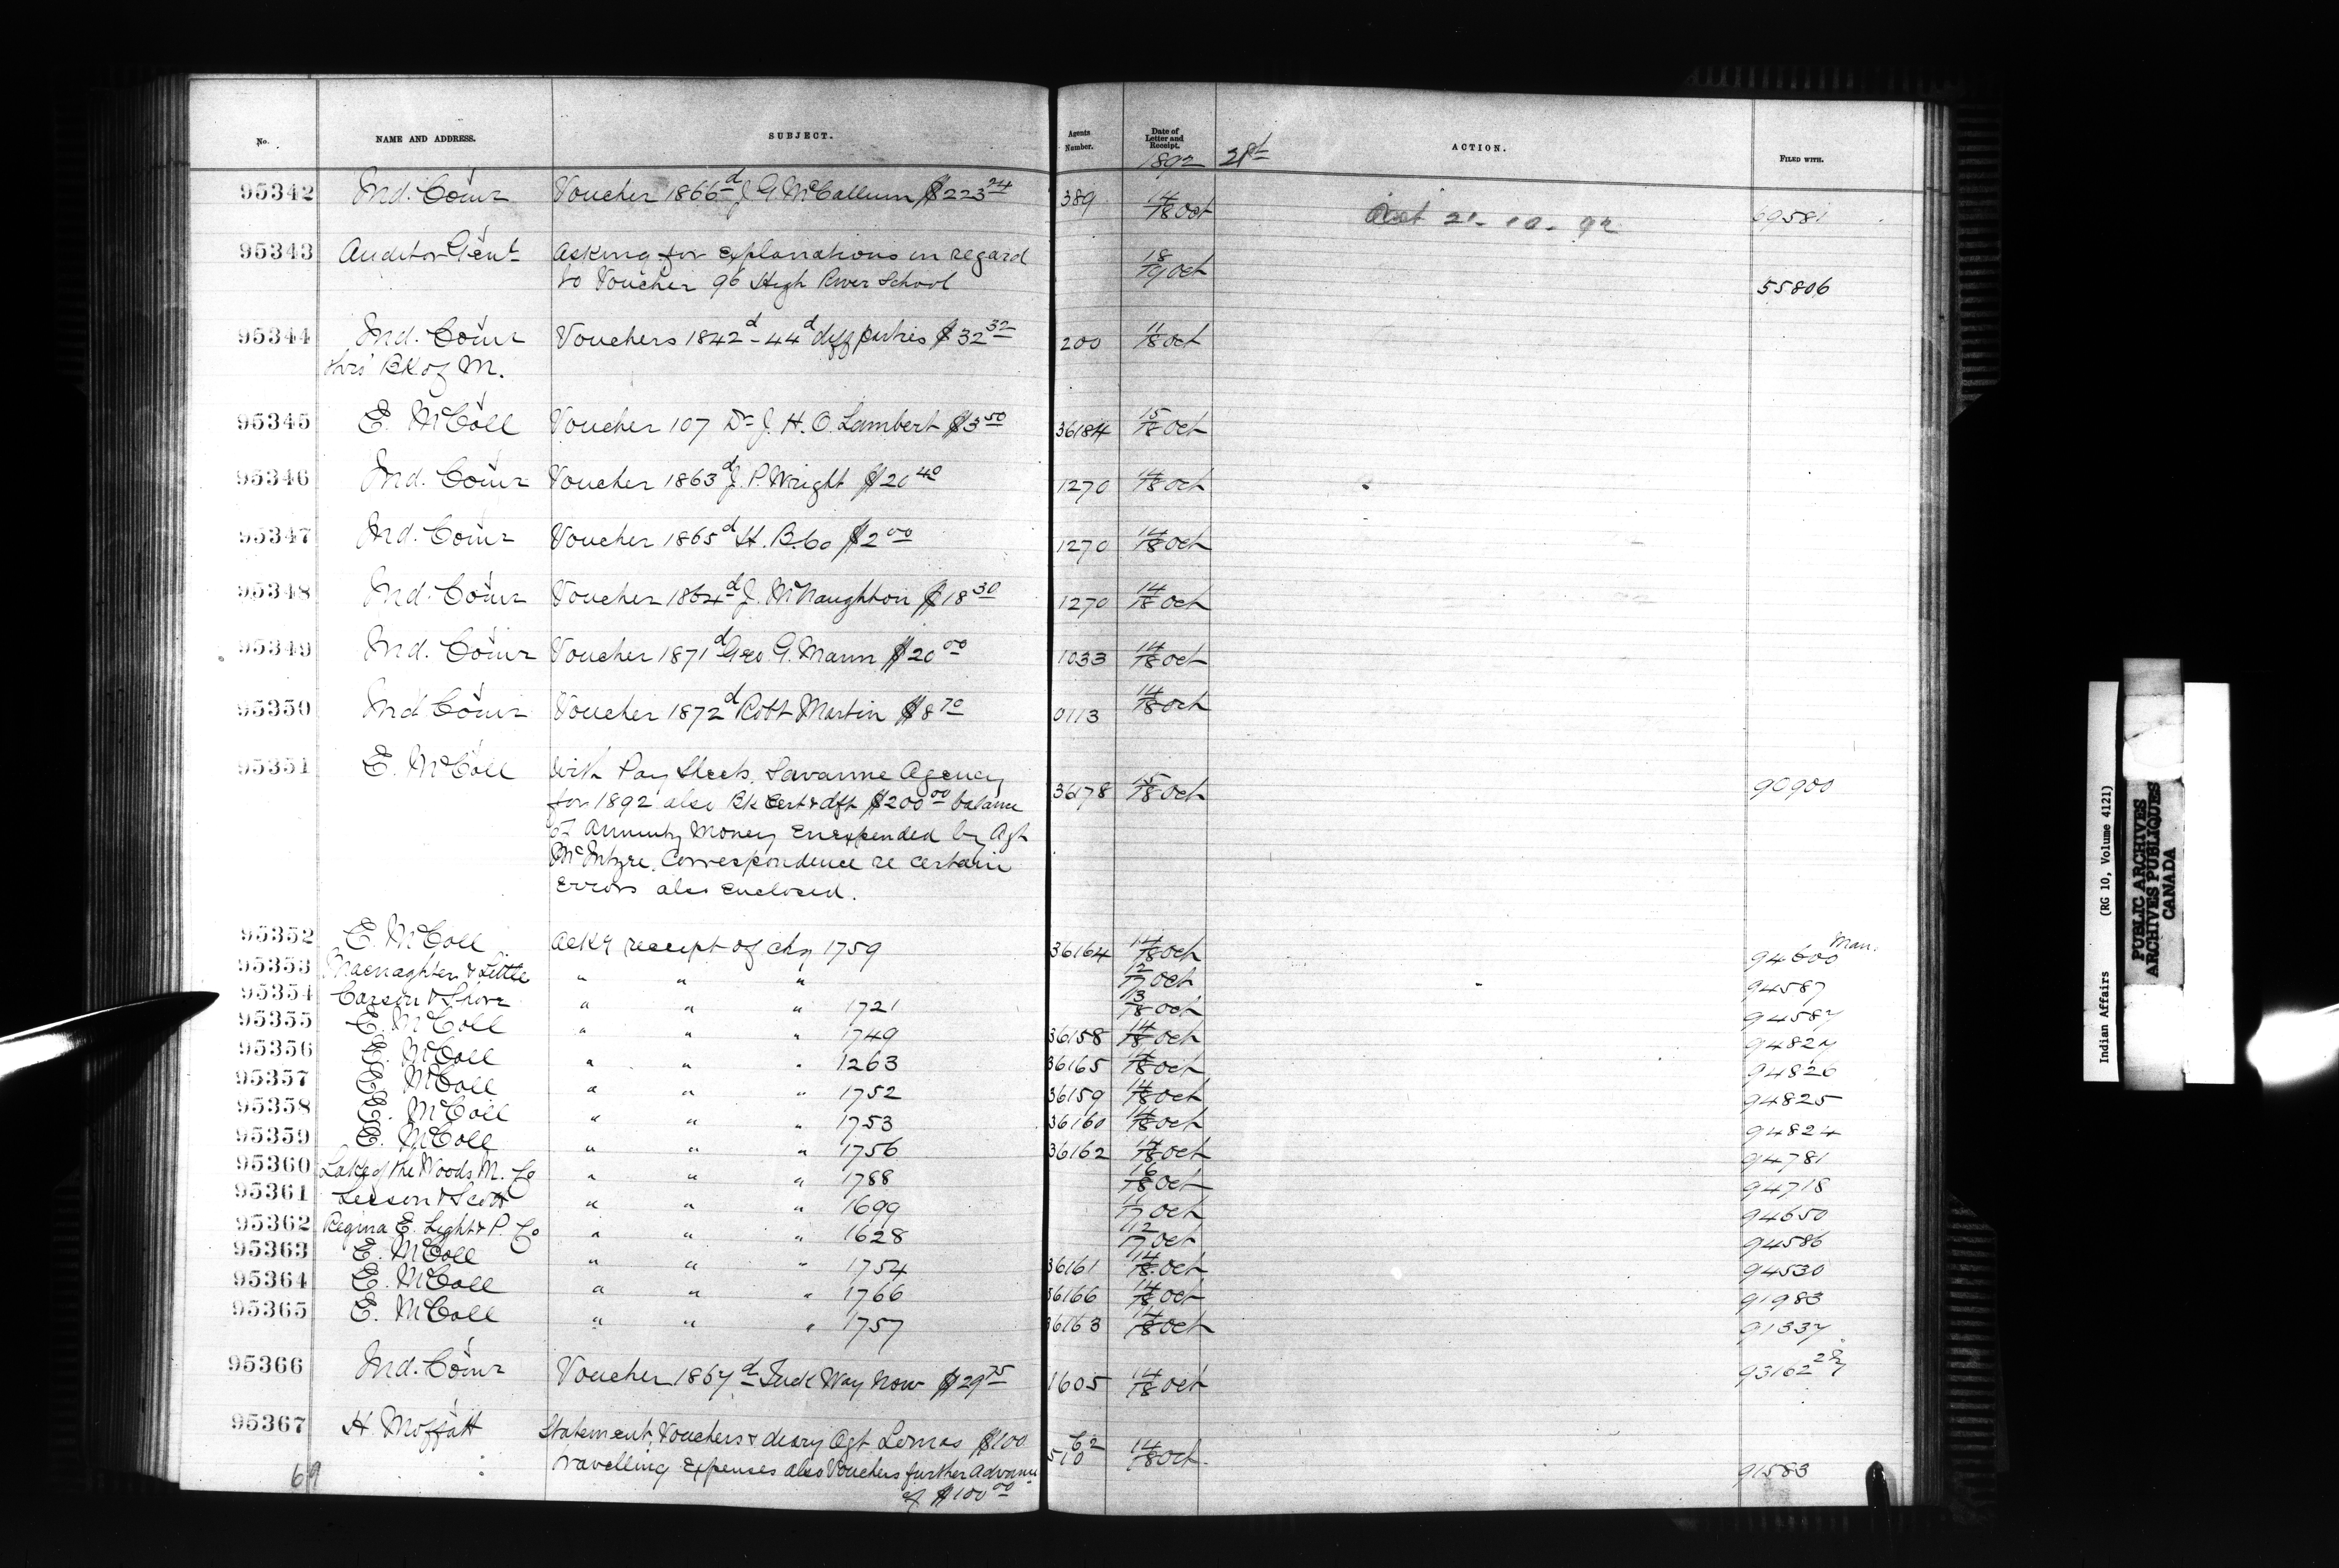 No. NAME AND ADDRESS. SUBJECT. Agents Number. Date of Letter and Receipt. ACTION. FILED WITH.
1892 21st
95342 Ind. Comr Voucher 1866d J G. McCallum $223 24 389 14/18 Oct Oct 21-10-92 69581
95343 Auditor Genl Asking for explanations in regard 18/19 Oct
to Voucher 96 High River School 55806
95344 Ind. Comr Vouchers 1842d-44d diff parties $32 32 200 11/18 Oct
thro' Bk of M.
95345 E. McColl Voucher 107 Dr J. H. O. Lambert $3 50 36184 15/18 Oct
95346 Ind. Comr Voucher 1863d J. P. Wright $20 40 1270 14/18 Oct
95347 Ind. Comr Voucher 1865d H. B. Co $2 00 1270 14/18 Oct
95348 Ind. Comr Voucher 1864d J. McNaughton $18 30 1270 14/18 Oct
95349 Ind. Comr Voucher 1871d Geo. G. Mann $20 00 1033 14/18 Oct
95350 Ind Comr Voucher 1872d Robt Martin $8 70 0113 14/18 Oct
95351 E. McColl With Pay Sheets, Savanne Agency
for 1892 also Bk Cert & dft $200 00 balance 36178 15/18 Oct 90900
of Annuity Money Unexpended by Agt
McIntyre. Correspondence re certain
errors also enclosed.
95352 E. McColl Ackg receipt of chq 1759 36164 14/18 Oct 94600 Man.
95353 Macnaghten & Little " " " 12/17 Oct 94587
95354 Carson & Shore " " " 1721 13/18 Oct 94587
95355 E. McColl " " " 1749 36158 14/18 Oct 94827
95356 E. McColl " " " 1263 36165 14/18 Oct 94826
95357 E. McColl " " " 1752 36159 14/18 Oct 94825
95358 E. McColl " " " 1753 36160 14/18 Oct 94824
95359 E. McColl " " " 1756 36162 14/18 Oct 94781
95360 Lake of the Woods M. Co " " " 1788 16/18 Oct 94718
95361 Leeson & Scott " " " 1699 17 Oct 94650
95362 Regina E. Light & P. Co " " " 1628 12/17 Oct 94586
95363 E. McColl " " " 1754 36161 14/18 Oct 94530
95364 E. McColl " " " 1766 36166 14/18 Oct 91983
95365 E. McColl " " " 1757 36163 14/18 Oct 91337
95366 Ind. Comr Voucher 1867d Juck Way Now $29 75 1605 14/18 Oct 93162
95367 H. Moffatt Statement, Vouchers & diary Agt. Lomas $100 62/510 14/18 Oct.
travelling Expenses also Vouchers further Advance 91583
of $100 00
69
Indian Affairs (RG 10, Volume 4121)
PUBLIC ARCHIVES
ARCHIVES PUBLIQUES
CANADA